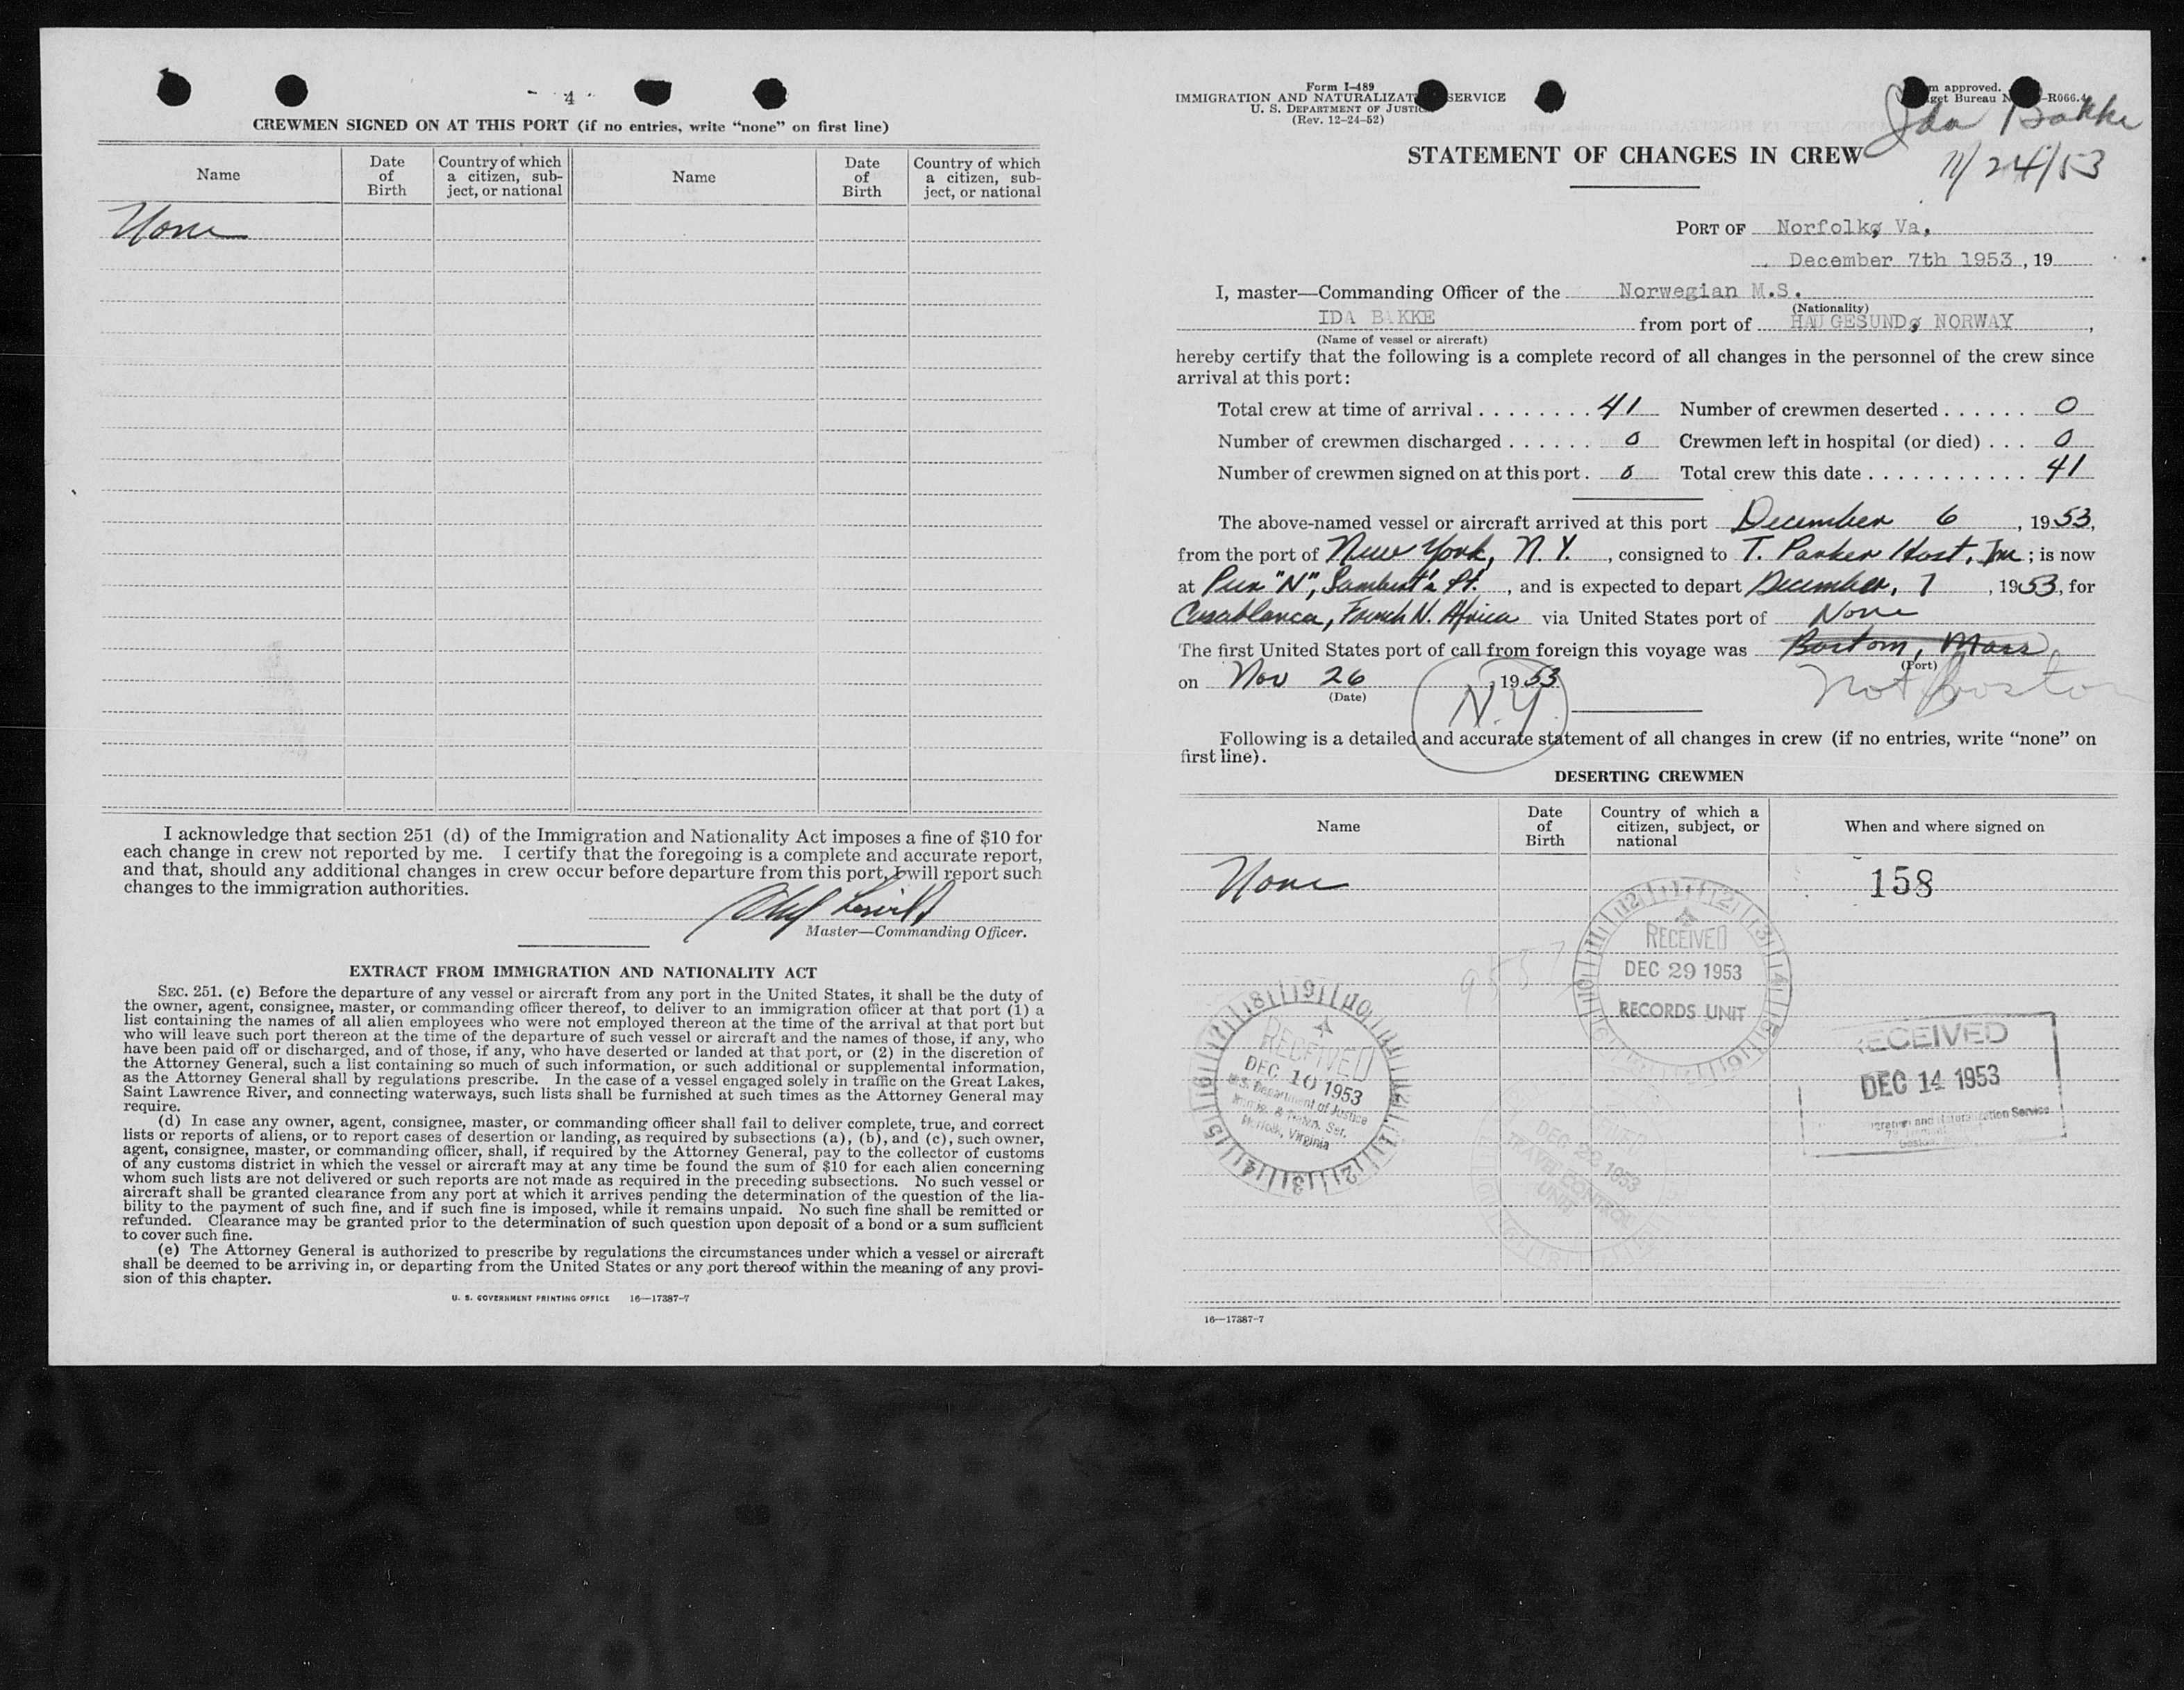 4
CREWMEN SIGNED ON AT THIS PORT (if no entries, write "none" on first line)
Name Date of Birth Country of which a citizen, subject, or national Name Date of Birth Country of which a citizen, subject, or national
None
I acknowledge that section 251 (d) of the Immigration and Nationality Act imposes a fine of $10 for
each change in crew not reported by me. I certify that the foregoing is a complete and accurate report,
and that, should any additional changes in crew occur before departure from this port, I will report such
changes to the immigration authorities.
Master—Commanding Officer.
EXTRACT FROM IMMIGRATION AND NATIONALITY ACT
SEC. 251. (c) Before the departure of any vessel or aircraft from any port in the United States, it shall be the duty of
the owner, agent, consignee, master, or commanding officer thereof, to deliver to an immigration officer at that port (1) a
list containing the names of all alien employees who were not employed thereon at the time of the arrival at that port but
who will leave such port thereon at the time of the departure of such vessel or aircraft and the names of those, if any, who
have been paid off or discharged, and of those, if any, who have deserted or landed at that port, or (2) in the discretion of
the Attorney General, such a list containing so much of such information, or such additional or supplemental information,
as the Attorney General shall by regulations prescribe. In the case of a vessel engaged solely in traffic on the Great Lakes,
Saint Lawrence River, and connecting waterways, such lists shall be furnished at such times as the Attorney General may
require.
(d) In case any owner, agent, consignee, master, or commanding officer shall fail to deliver complete, true, and correct
lists or reports of aliens, or to report cases of desertion or landing, as required by subsections (a), (b), and (c), such owner,
agent, consignee, master, or commanding officer, shall, if required by the Attorney General, pay to the collector of customs
of any customs district in which the vessel or aircraft may at any time be found the sum of $10 for each alien concerning
whom such lists are not delivered or such reports are not made as required in the preceding subsections. No such vessel or
aircraft shall be granted clearance from any port at which it arrives pending the determination of the question of the lia-
bility to the payment of such fine, and if such fine is imposed, while it remains unpaid. No such fine shall be remitted or
refunded. Clearance may be granted prior to the determination of such question upon deposit of a bond or a sum sufficient
to cover such fine.
(e) The Attorney General is authorized to prescribe by regulations the circumstances under which a vessel or aircraft
shall be deemed to be arriving in, or departing from the United States or any port thereof within the meaning of any provi-
sion of this chapter.
U. S. GOVERNMENT PRINTING OFFICE 16—17387-7
Form I-489
IMMIGRATION AND NATURALIZAT SERVICE
U. S. DEPARTMENT OF JUSTIC
(Rev. 12-24-52)
m approved.
get Bureau N -R066.4
Ida Bakke
11/24/53
STATEMENT OF CHANGES IN CREW
PORT OF Norfolk, Va,
December 7th 1953, 19
I, master—Commanding Officer of the Norwegian M.S.
(Nationality)
IDA BAKKE from port of HAUGESUND, NORWAY,
(Name of vessel or aircraft)
hereby certify that the following is a complete record of all changes in the personnel of the crew since
arrival at this port:
Total crew at time of arrival . . . . . . . . 41 Number of crewmen deserted . . . . . . 0
Number of crewmen discharged . . . . . . 0 Crewmen left in hospital (or died) . . . 0
Number of crewmen signed on at this port . 0 Total crew this date . . . . . . . . . . . 41
The above-named vessel or aircraft arrived at this port December 6, 1953,
from the port of New York, N.Y., consigned to T. Parker Host, Inc; is now
at Pier "N", Lambert's Pt., and is expected to depart December, 7, 1953, for
Casablanca, French N. Africa via United States port of None
The first United States port of call from foreign this voyage was Boston, Mass
(Port)
on Nov 26, 1953 not Boston
(Date)
N.Y.
Following is a detailed and accurate statement of all changes in crew (if no entries, write "none" on
first line).
DESERTING CREWMEN
Name Date of Birth Country of which a citizen, subject, or national When and where signed on
None 158
RECEIVED
DEC 29 1953
RECORDS UNIT
9557
RECEIVED
DEC 10 1953
U.S. Department of Justice
Immig. & Natzn. Ser.
Norfolk, Virginia
RECEIVED
DEC 14 1953
DEC 1953
TRAVEL CONTROL
UNIT
16—17387-7